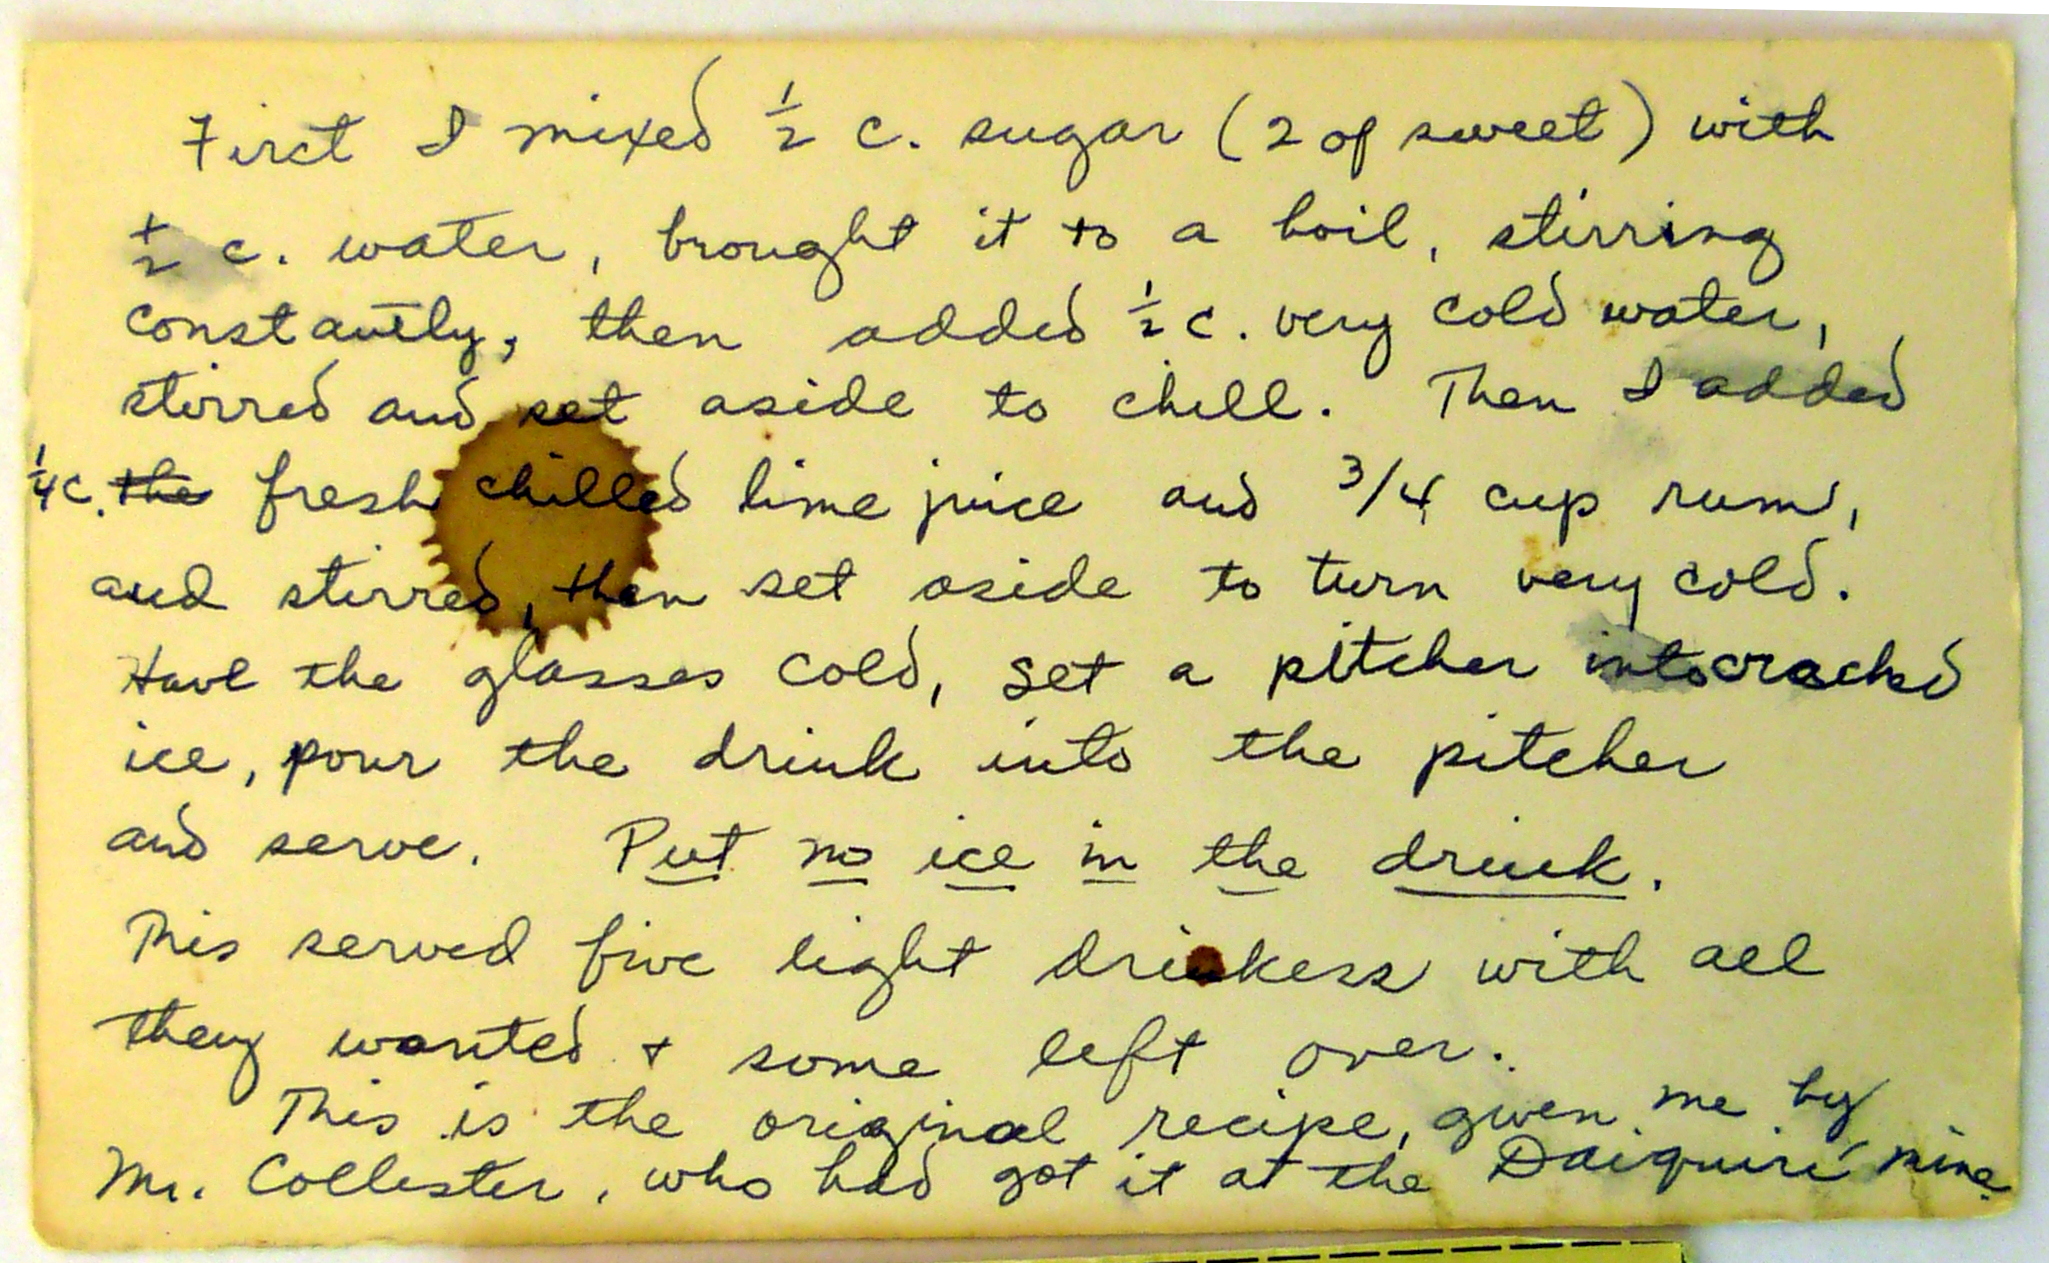 First I mixed ½ c. sugar (2 of sweet) with
½ c. water, brought it to a boil, stirring
constantly, then added ½ c. very cold water,
stirred and set aside to chill. Then I added
¼ c. the fresh chilled lime juice and 3/4 cup rum,
and stirred, then set aside to turn very cold.
Have the glasses cold, set a pitcher into cracked
ice, pour the drink into the pitcher
and serve. Put no ice in the drink.
This served five light drinkers with all
they wanted + some left over.
This is the original recipe, given me by
Mr. Collester, who had got it at the Daiquiri mine.